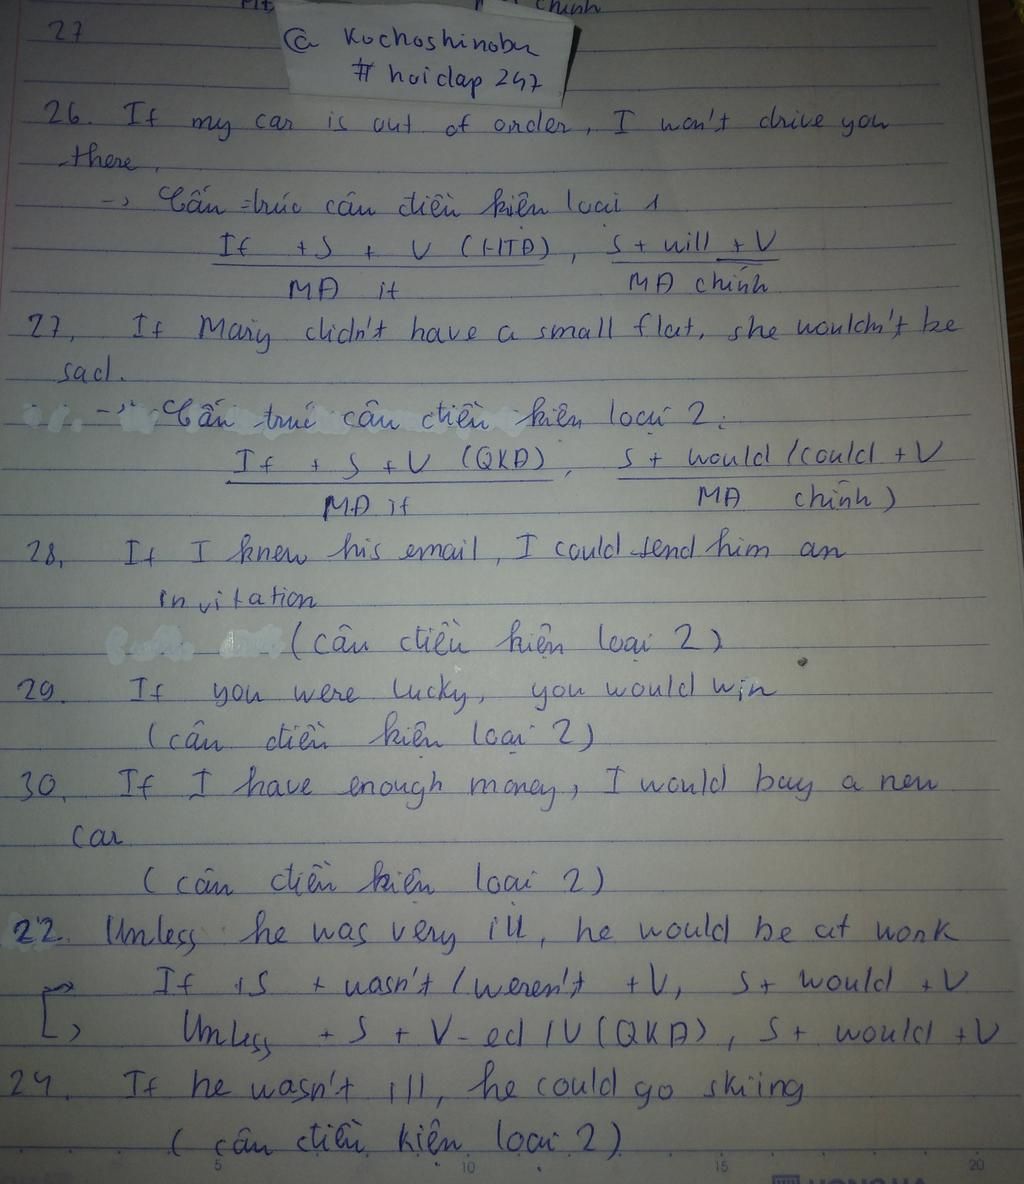 chính
27
@ Kochoshinobu
# hoidap 247
26. If my car is out of order, I won't drive you
there.
-> Cấu trúc câu điều kiện loại 1
If + S + V (HTĐ), S + will + V
MĐ if MĐ chính
27, If Mary didn't have a small flat, she wouldn't be
sad.
-> Cấu trúc câu điều kiện loại 2:
If + S + V (QKĐ), S + would / could + V
MĐ if MĐ chính)
28, If I knew his email, I could send him an
invitation
(câu điều kiện loại 2)
29. If you were lucky, you would win
(câu điều kiện loại 2)
30, If I have enough money, I would buy a new
car
(câu điều kiện loại 2)
22. Unless he was very ill, he would be at work
-> If + S + wasn't / weren't + V, S + would + V
-> Unless + S + V-ed / V (QKĐ), S + would + V
24. If he wasn't ill, he could go skiing
(câu điều kiện loại 2)
5 10 15 20